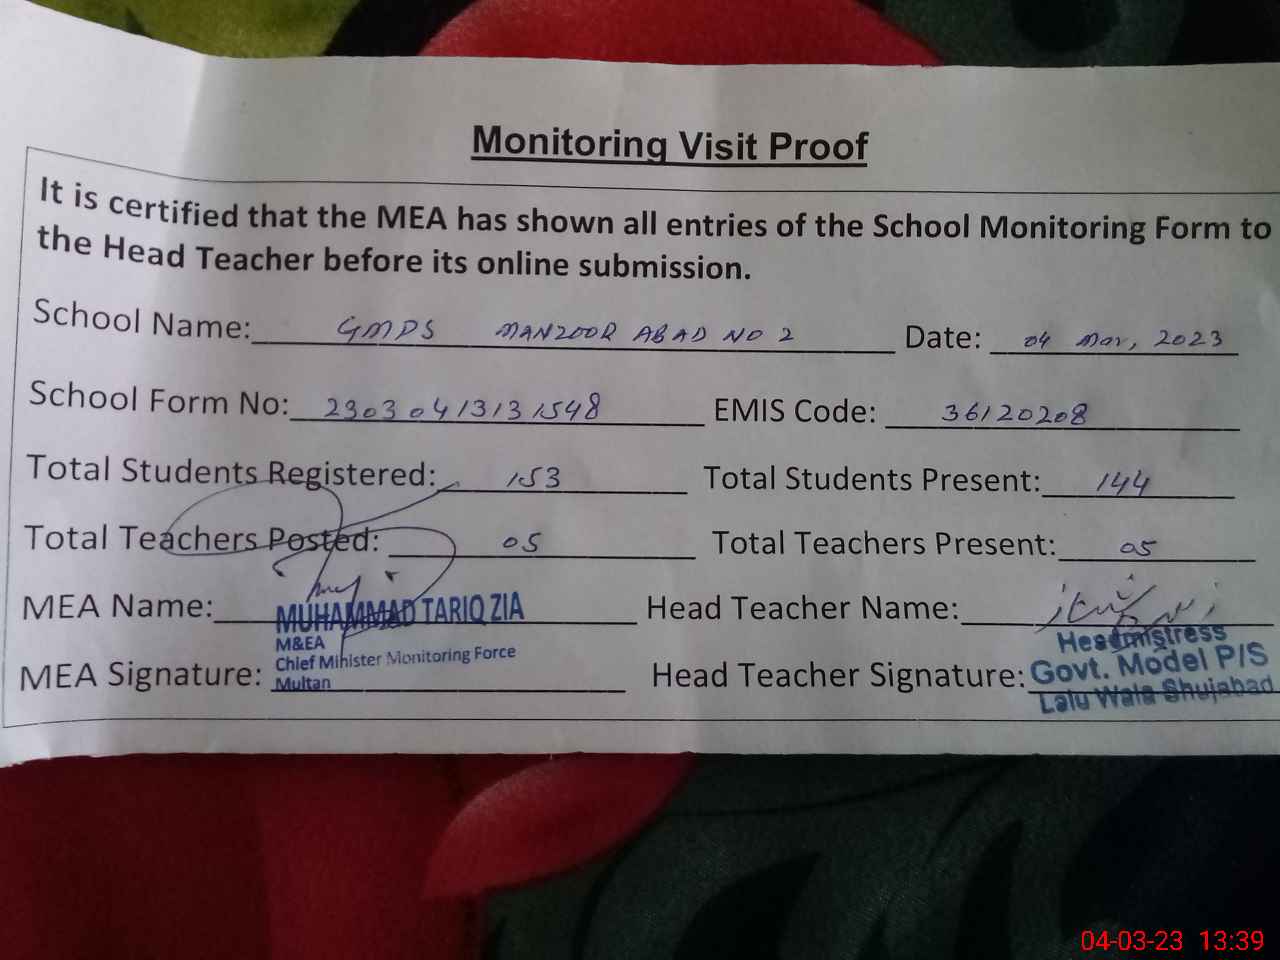 Monitoring Visit Proof
It is certified that the MEA has shown all entries of the School Monitoring Form to
the Head Teacher before its online submission.
School Name: GMPS MANZOOR ABAD NO 2 Date: 04 Mar, 2023
School Form No: 23030413131548 EMIS Code: 36120208
Total Students Registered: 153 Total Students Present: 144
Total Teachers Posted: 05 Total Teachers Present: 05
MEA Name: MUHAMMAD TARIQ ZIA Head Teacher Name:
M&EA Headmistress
Chief Minister Monitoring Force
MEA Signature: Multan Head Teacher Signature: Govt. Model P/S
Lalu Wala Shujabad
04-03-23 13:39